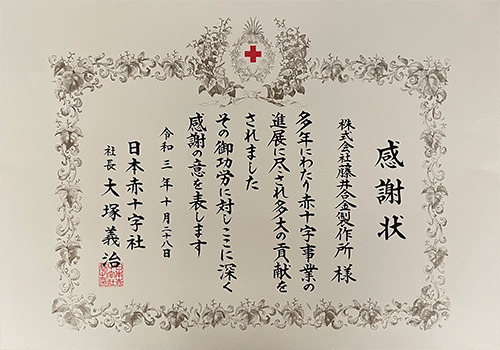 感謝状
株式会社藤井合金製作所 様
多年にわたり赤十字事業の
進展に尽され多大の貢献を
されました
その御功労に対しここに深く
感謝の意を表します
令和三年十月二十八日
日本赤十字社
社長 大塚義治